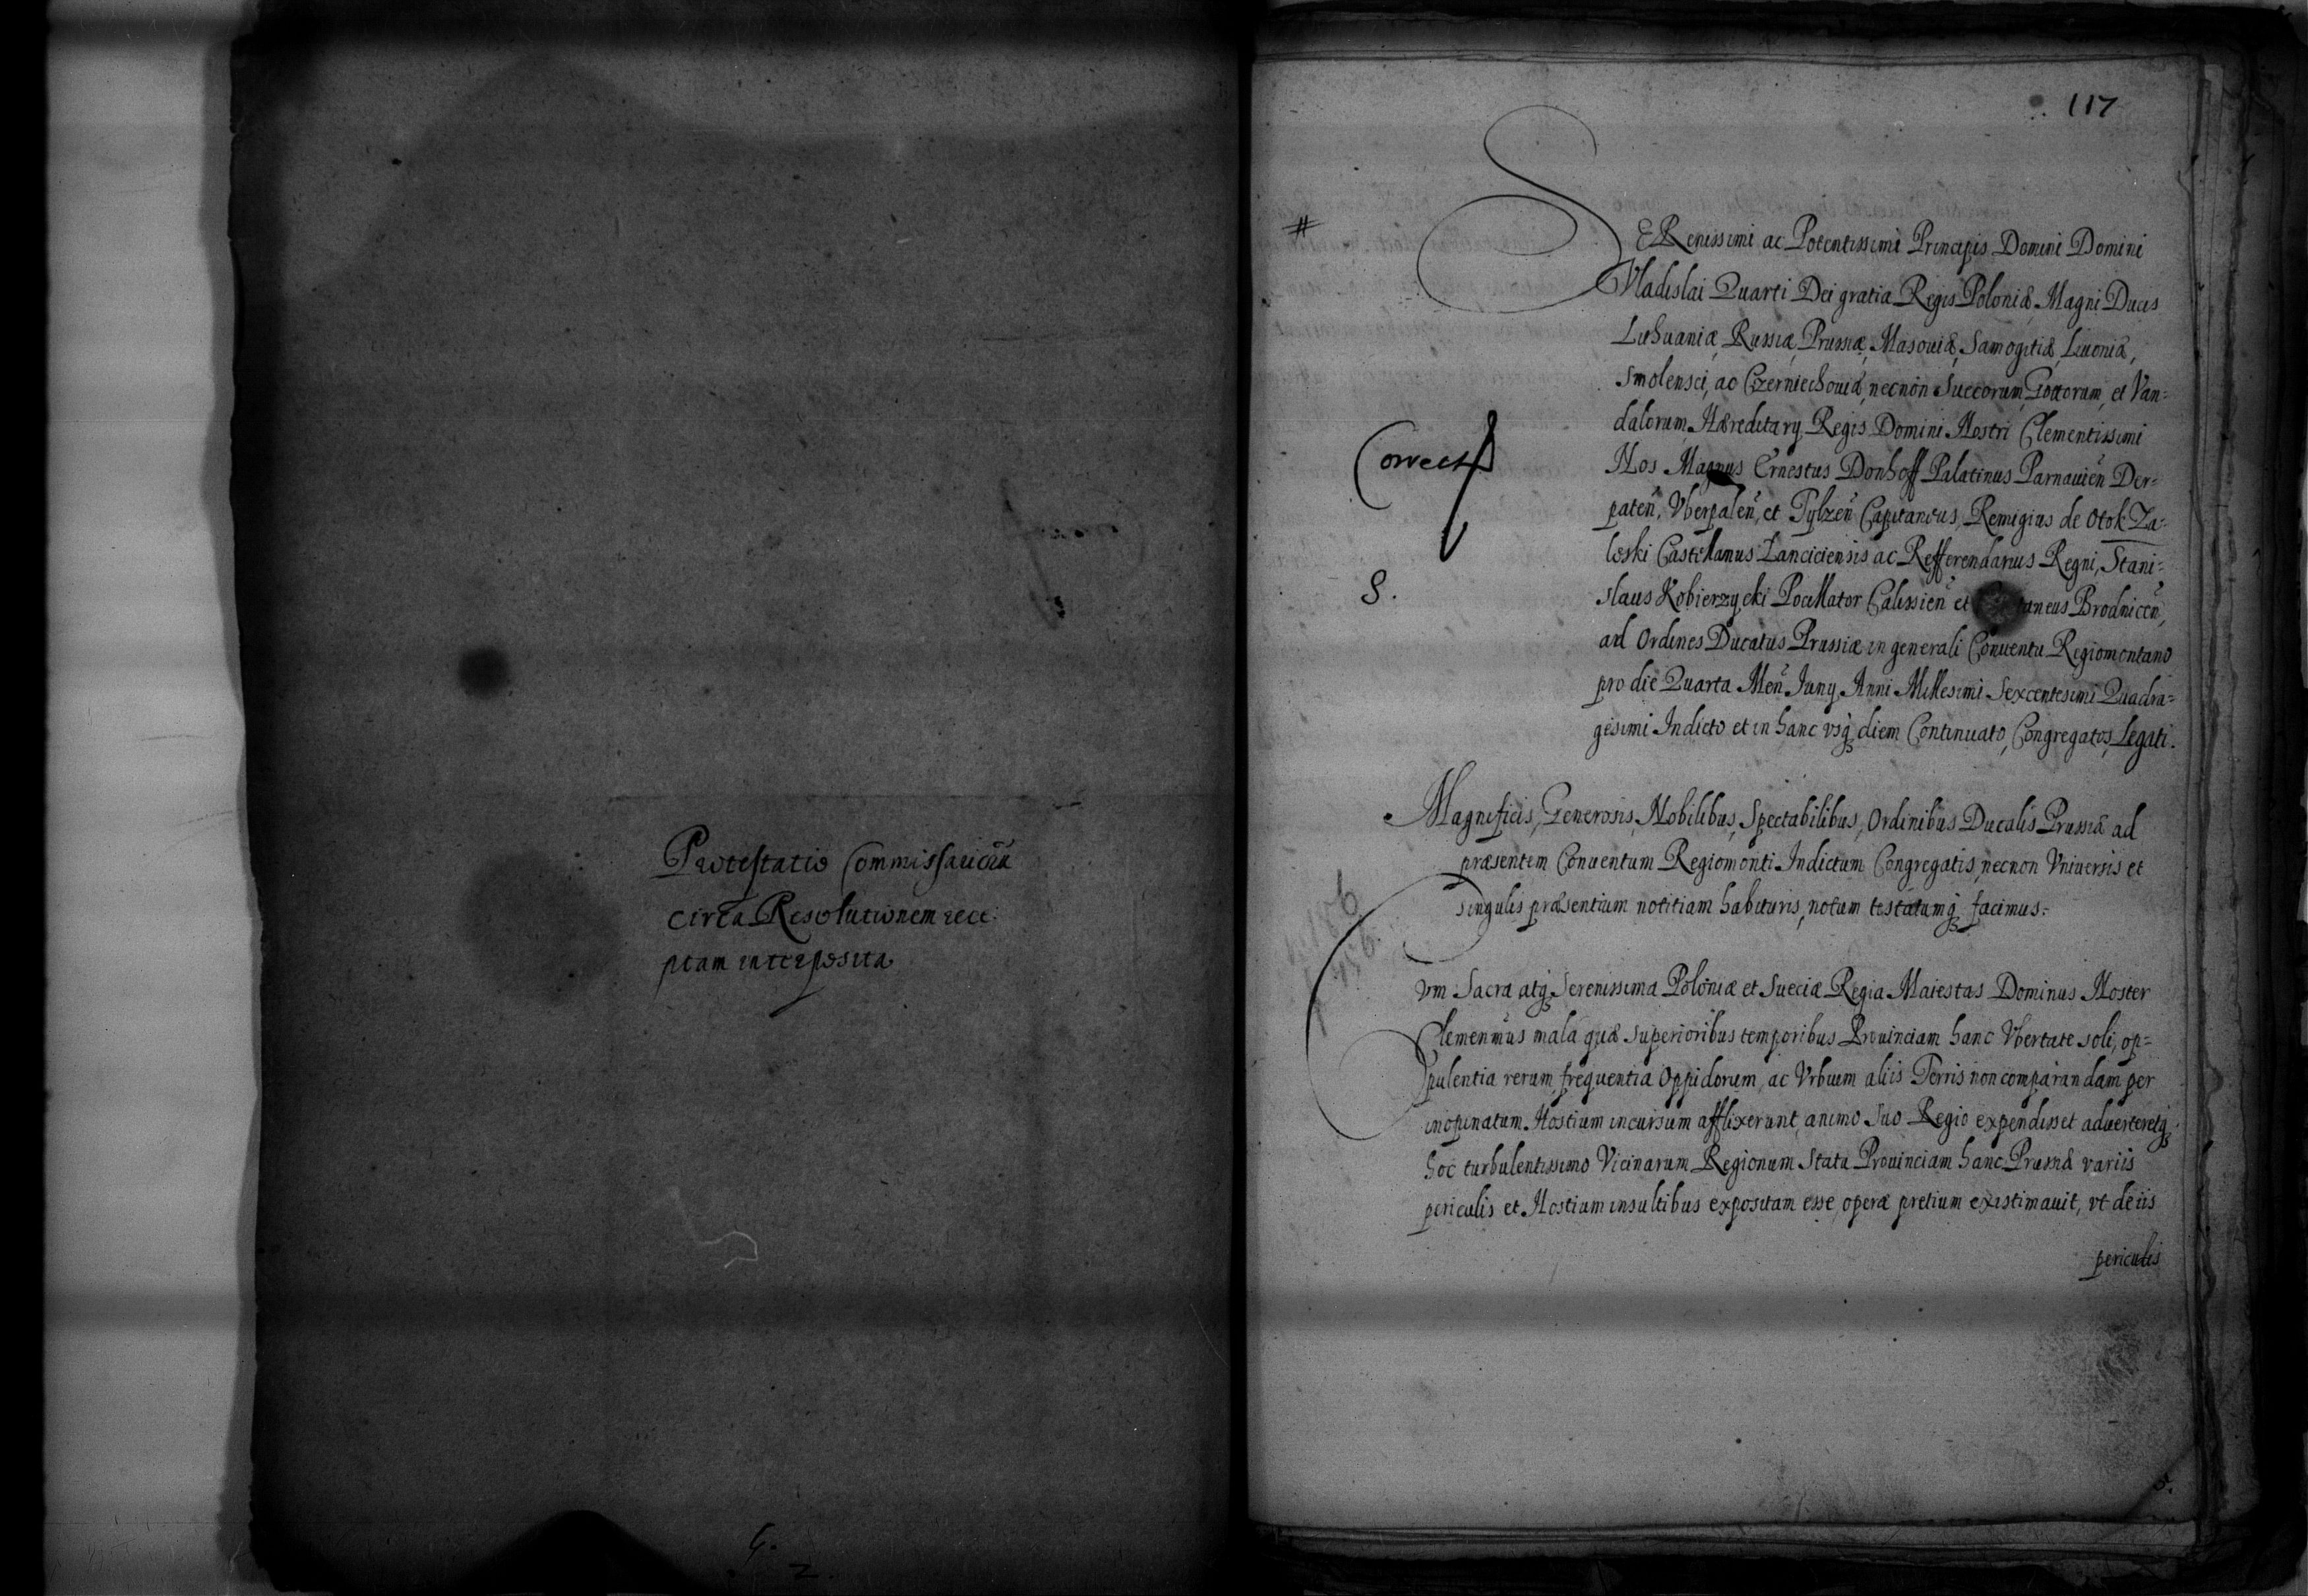 Protestatio Commissariorũ
circa Resolutionem rece:
ptam interposita
117
#
SERenissimi ac Potentissimi Principis Domini Domini
Vladislai Quarti Dei gratia Regis Poloniæ, Magni Ducis
Lithuaniæ, Russiæ, Prussiæ, Masouiæ, Samogitiæ Liuoniæ,
Smolensci, ac Czerniechouiæ, necnon Suecorum, Gottorum, et Van=
dalorum Hæreditarij Regis Domini Nostri Clementissimi
Nos Magnus Ernestus Donhoff Palatinus Parnauień Der=
pateń, Vberpaleń, et Tylzeń Capitaneus, Remigius de Otok Za=
leski Castellanus Lanciciensis ac Refferendarius Regni, Stani=
slaus Kobierzycki Pocillator Calissień et taneus Brodniceń,
ad Ordines Ducatus Prussiæ in generali Conuentu Regiomontano
pro die Quarta Meñ Junij Anni Millesimi Sexcentesimi Quadra=
gesimi Indicto et in hanc vsq3 diem Continuato, Congregatos, Legati.
Correct
8.
Magnificis, Generosis, Nobilibus, Spectabilibus, Ordinibus Ducalis Prussiæ ad
præsentem Conuentum Regiomonti Indictum Congregatis, necnon Vniuersis et
Singulis præsentium notitiam habituris, notum testatumq3 facimus.
Cvm Sacra atq3 Serenissima Poloniæ et Sueciæ Regia Maiestas Dominus Noster
Clemenmus mala quæ superioribus temporibus Prouinciam hanc Vbertate soli, op=
pulentia rerum, frequentia Oppidorum, ac Vrbium aliis Terris non comparandam per
inopinatum Hostium incursum afflixerunt, animo suo Regio expendisset aduerteretq3
hoc turbulentissimo Vicinarum Regionum Statu Prouinciam hanc Prussiæ variis
periculis et Hostium insultibus expositam esse, operæ pretium existimauit, vt de iis
periculis